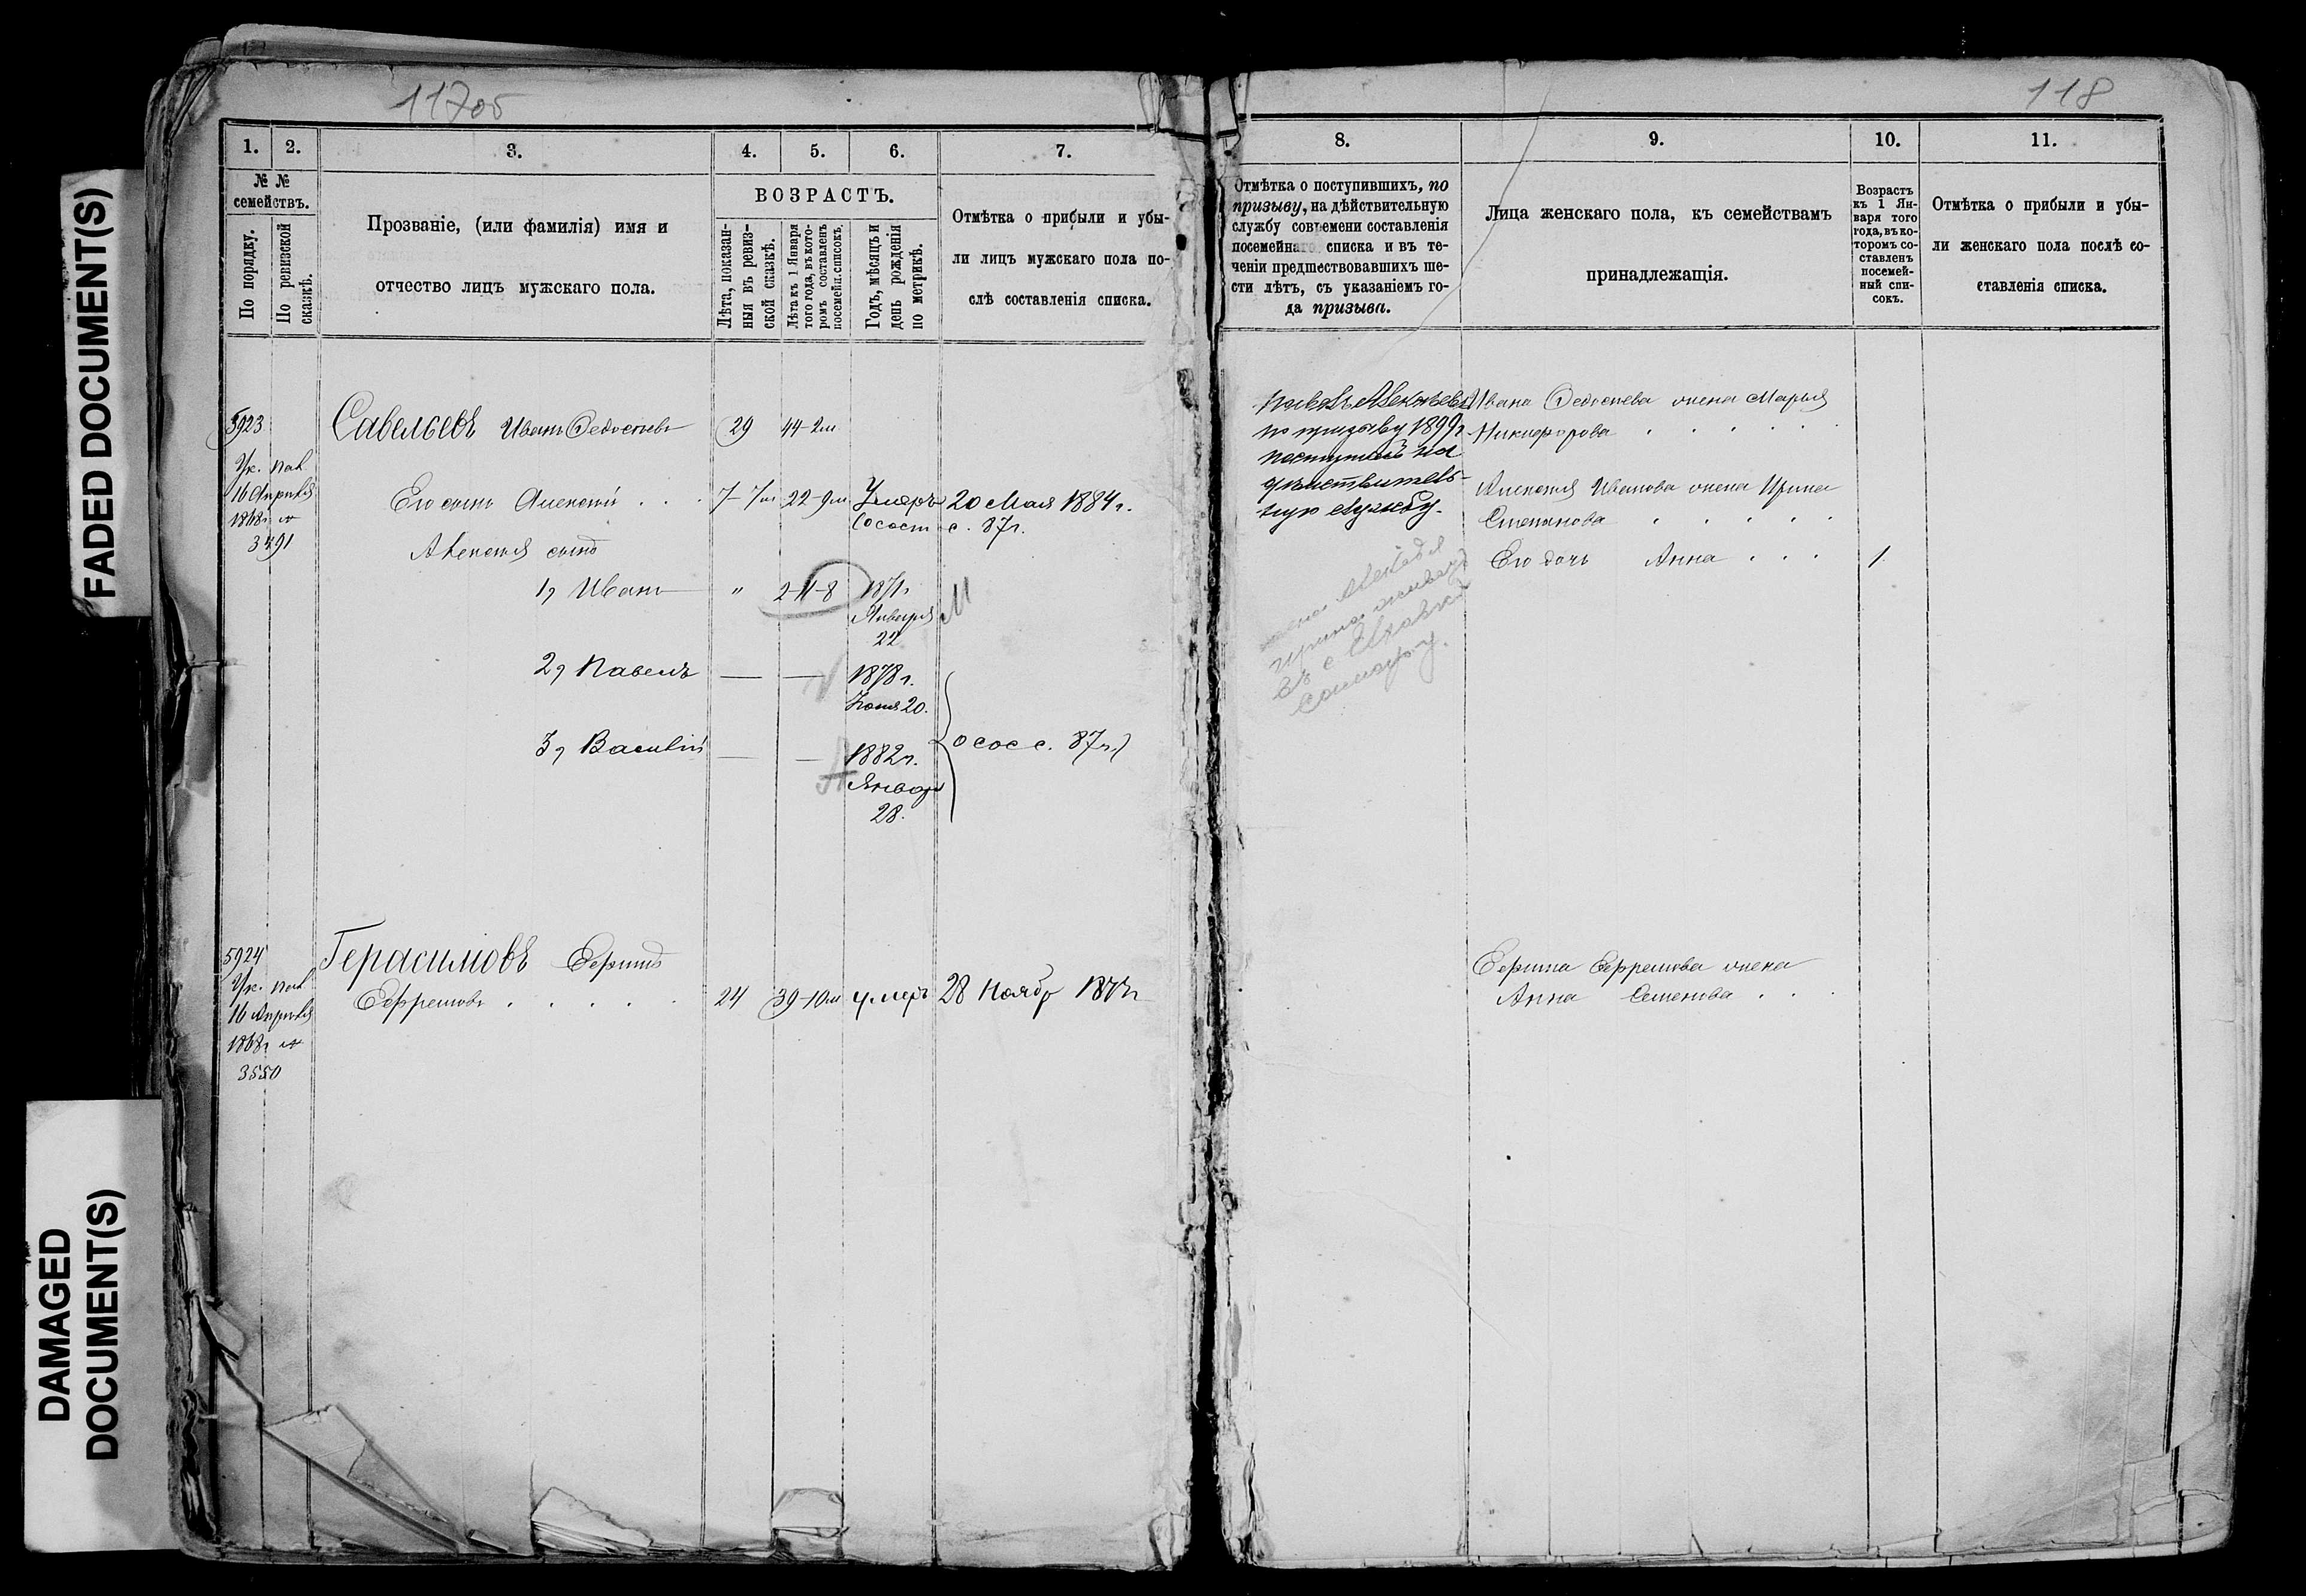 FADED DOCUMENT(S)
DAMAGED
DOCUMENT(S)
117об
1.
2.
3.
4.
5.
6.
7.
№ №
семействъ.
По порядку.
По ревизской
сказкѣ.
Прозваніе, (или фамилія) имя и
отчество лицъ мужскаго пола.
ВОЗРАСТЪ.
Лѣта, показан-
ныя въ ревиз-
ской сказкѣ.
Лѣта къ 1 Января
того года, въ кото-
ромъ составленъ
посемейн. списокъ.
Годъ, мѣсяцъ и
день рожденія
по метрикѣ.
Отмѣтка о прибыли и убы-
ли лицъ мужскаго пола по-
слѣ составленія списка.
5923
Савельевъ Иванъ Федосѣевъ
29
44-2м
Ук. пал
16 Апрѣля
1868г №
3491
Его сынъ Алексѣй . . .
7-7м
22-9м
Умеръ 20 Мая 1884г.
(о сост. с. 87г.
Алексѣя сынъ
1, Иванъ
"
2-11-8
1871г
Января
22
М
2, Павелъ
—
—
1878г.
Іюня 20.
3, Василій
—
—
1882г.
Январ
28.
о сос с. 87г.)
5924
Герасимовъ
Ук. пал
16 Апрѣля
1868г №
3550
Ефремовъ . . . . .
24
39-10м
умеръ 28 Ноябр
118
8.
9.
10.
11.
Отмѣтка о поступившихъ, по
призыву, на дѣйствительную
службу современи составленія
посемейнаго списка и въ те-
ченіи предшествовавшихъ ше-
сти лѣтъ, съ указаніемъ го-
да призыва.
Лица женскаго пола, къ семействамъ
принадлежащія.
Возрастъ
къ 1 Ян-
варя того
года, въ ко-
торомъ со-
ставленъ
посемей-
ный спи-
сокъ.
Отмѣтка о прибыли и убы-
ли женскаго пола послѣ со-
ставленія списка.
Павелъ Алексѣевъ
по призыву 1899г
поступилъ на
дѣйствитель-
ную службу.
Ивана Федосѣева жена Марья
Никифорова . . . . .
Алексѣя Иванова жена Ирина
Степанова . . . . .
Его дочь Анна . . .
1.
Ирина
въ с
Ефремова жена
Анна Семенова . .